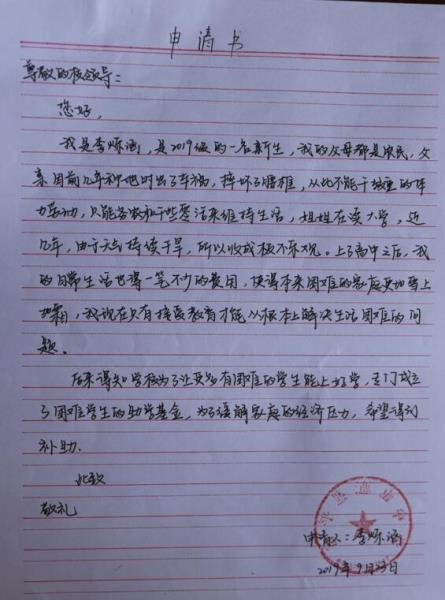 申请书
尊敬的校领导：
您好，
我是李烁涵，是2019级的一名新生，我的父母都是农民，父
亲因前几年种地时出了车祸，摔坏了腰椎，从此不能干繁重的体
力劳动，只能各家和干些零活来维持生活，姐姐在读大学，近
几年，由于天气持续干旱，所以收成极不乐观。上了高中之后，我
的日常生活也得一笔不少的费用，使得本来困难的家庭更加雪上
加霜，我现在只有接受教育才能从根本上解决生活困难的问
题。
后来得知学校为了让更多有困难的学生能上好学，专门成立
了困难学生的助学基金，为了缓解家庭的经济压力，希望得到
补助。
此致
敬礼
申请人：李烁涵
2019年9月23日